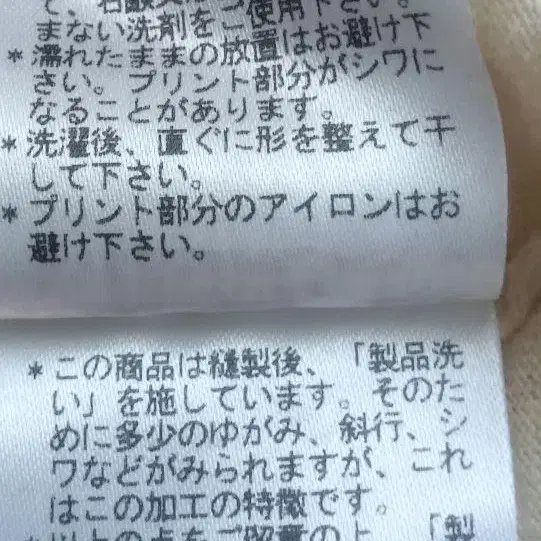 使用下さい。
まない洗剤をご使用下さい。
*濡れたままの放置はお避け下
さい。プリント部分がシワに
なることがあります。
*洗濯後、直ぐに形を整えて干
して下さい。
*プリント部分のアイロンはお
避け下さい。
*この商品は縫製後、「製品洗
い」を施しています。そのた
めに多少のゆがみ、斜行、シ
ワなどがみられますが、これ
はこの加工の特徴です。
*以上の点をご留意の上、「製